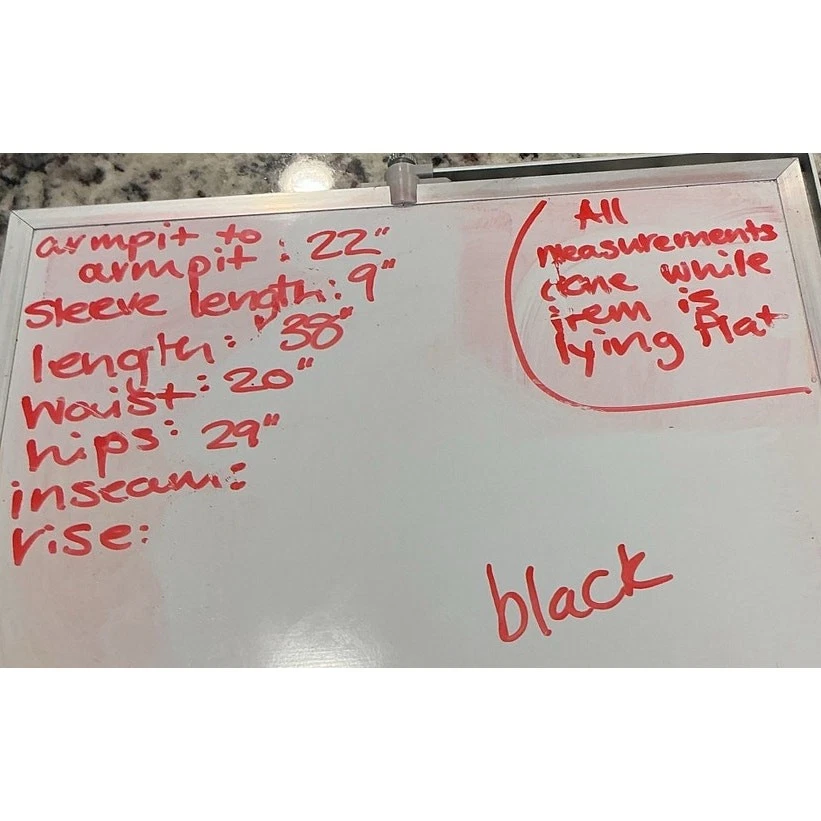 armpit to
armpit : 22"
sleeve length: 9"
length: 38"
waist: 20"
hips: 29"
inseam:
rise:
All
measurements
done while
item is
lying flat
black